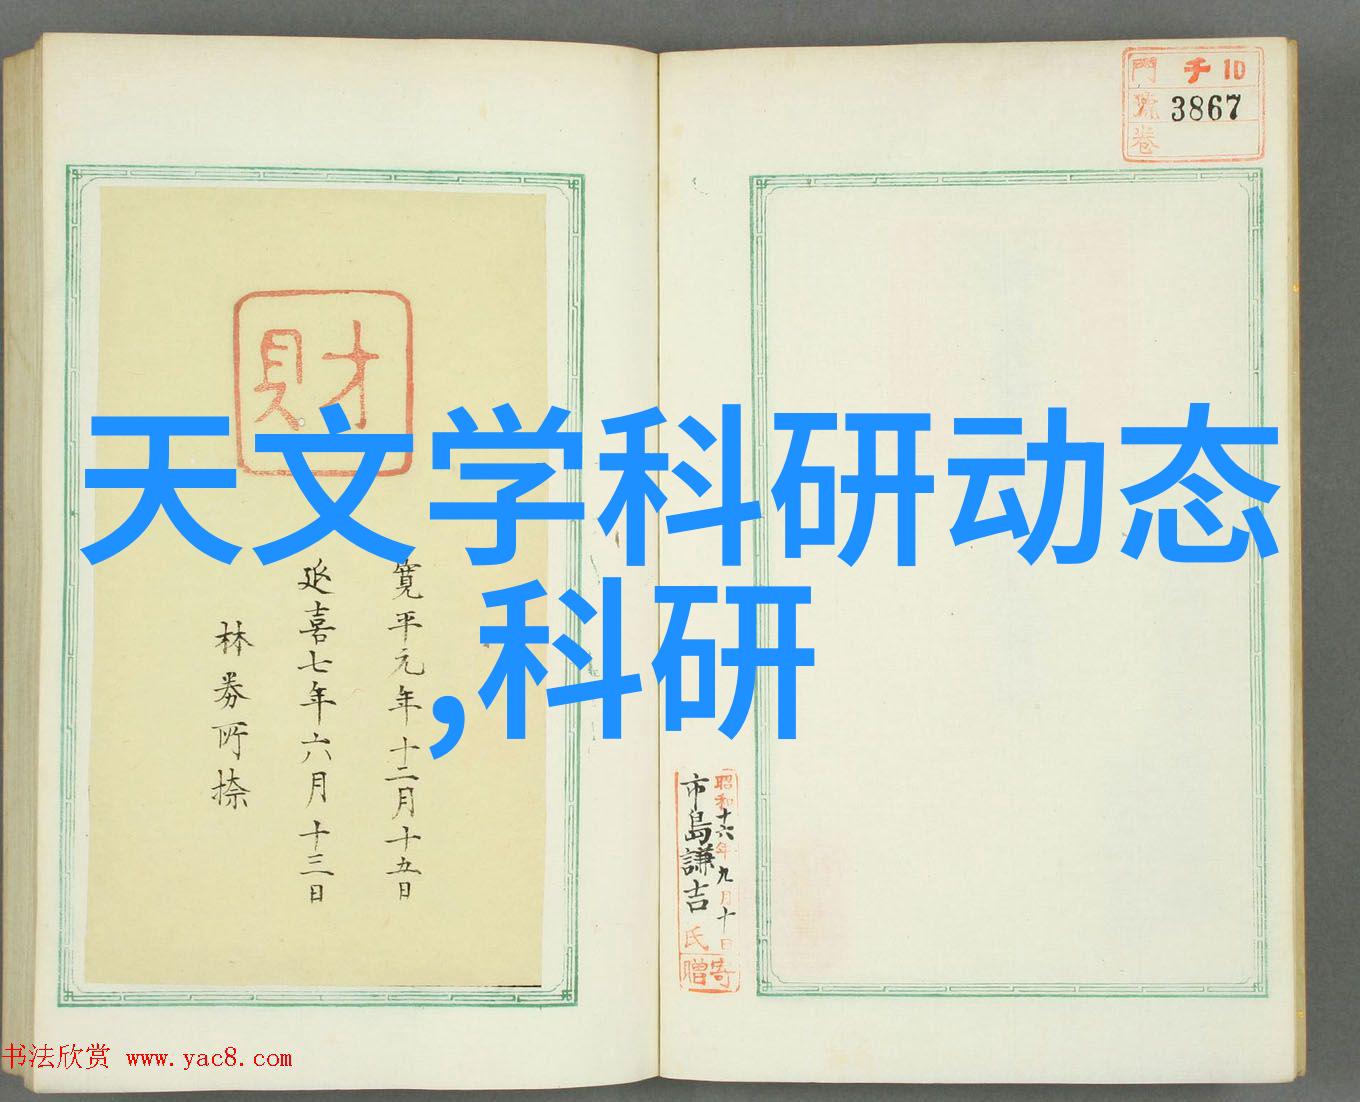 門 チ 10
號 3867
卷
財
天文学科研动态
,科研
寛平元年十二月十五日
延喜七年六月十三日
林券所捺
昭和十六年九月十日
市島謙吉氏
寄贈
书法欣赏 www.yac8.com